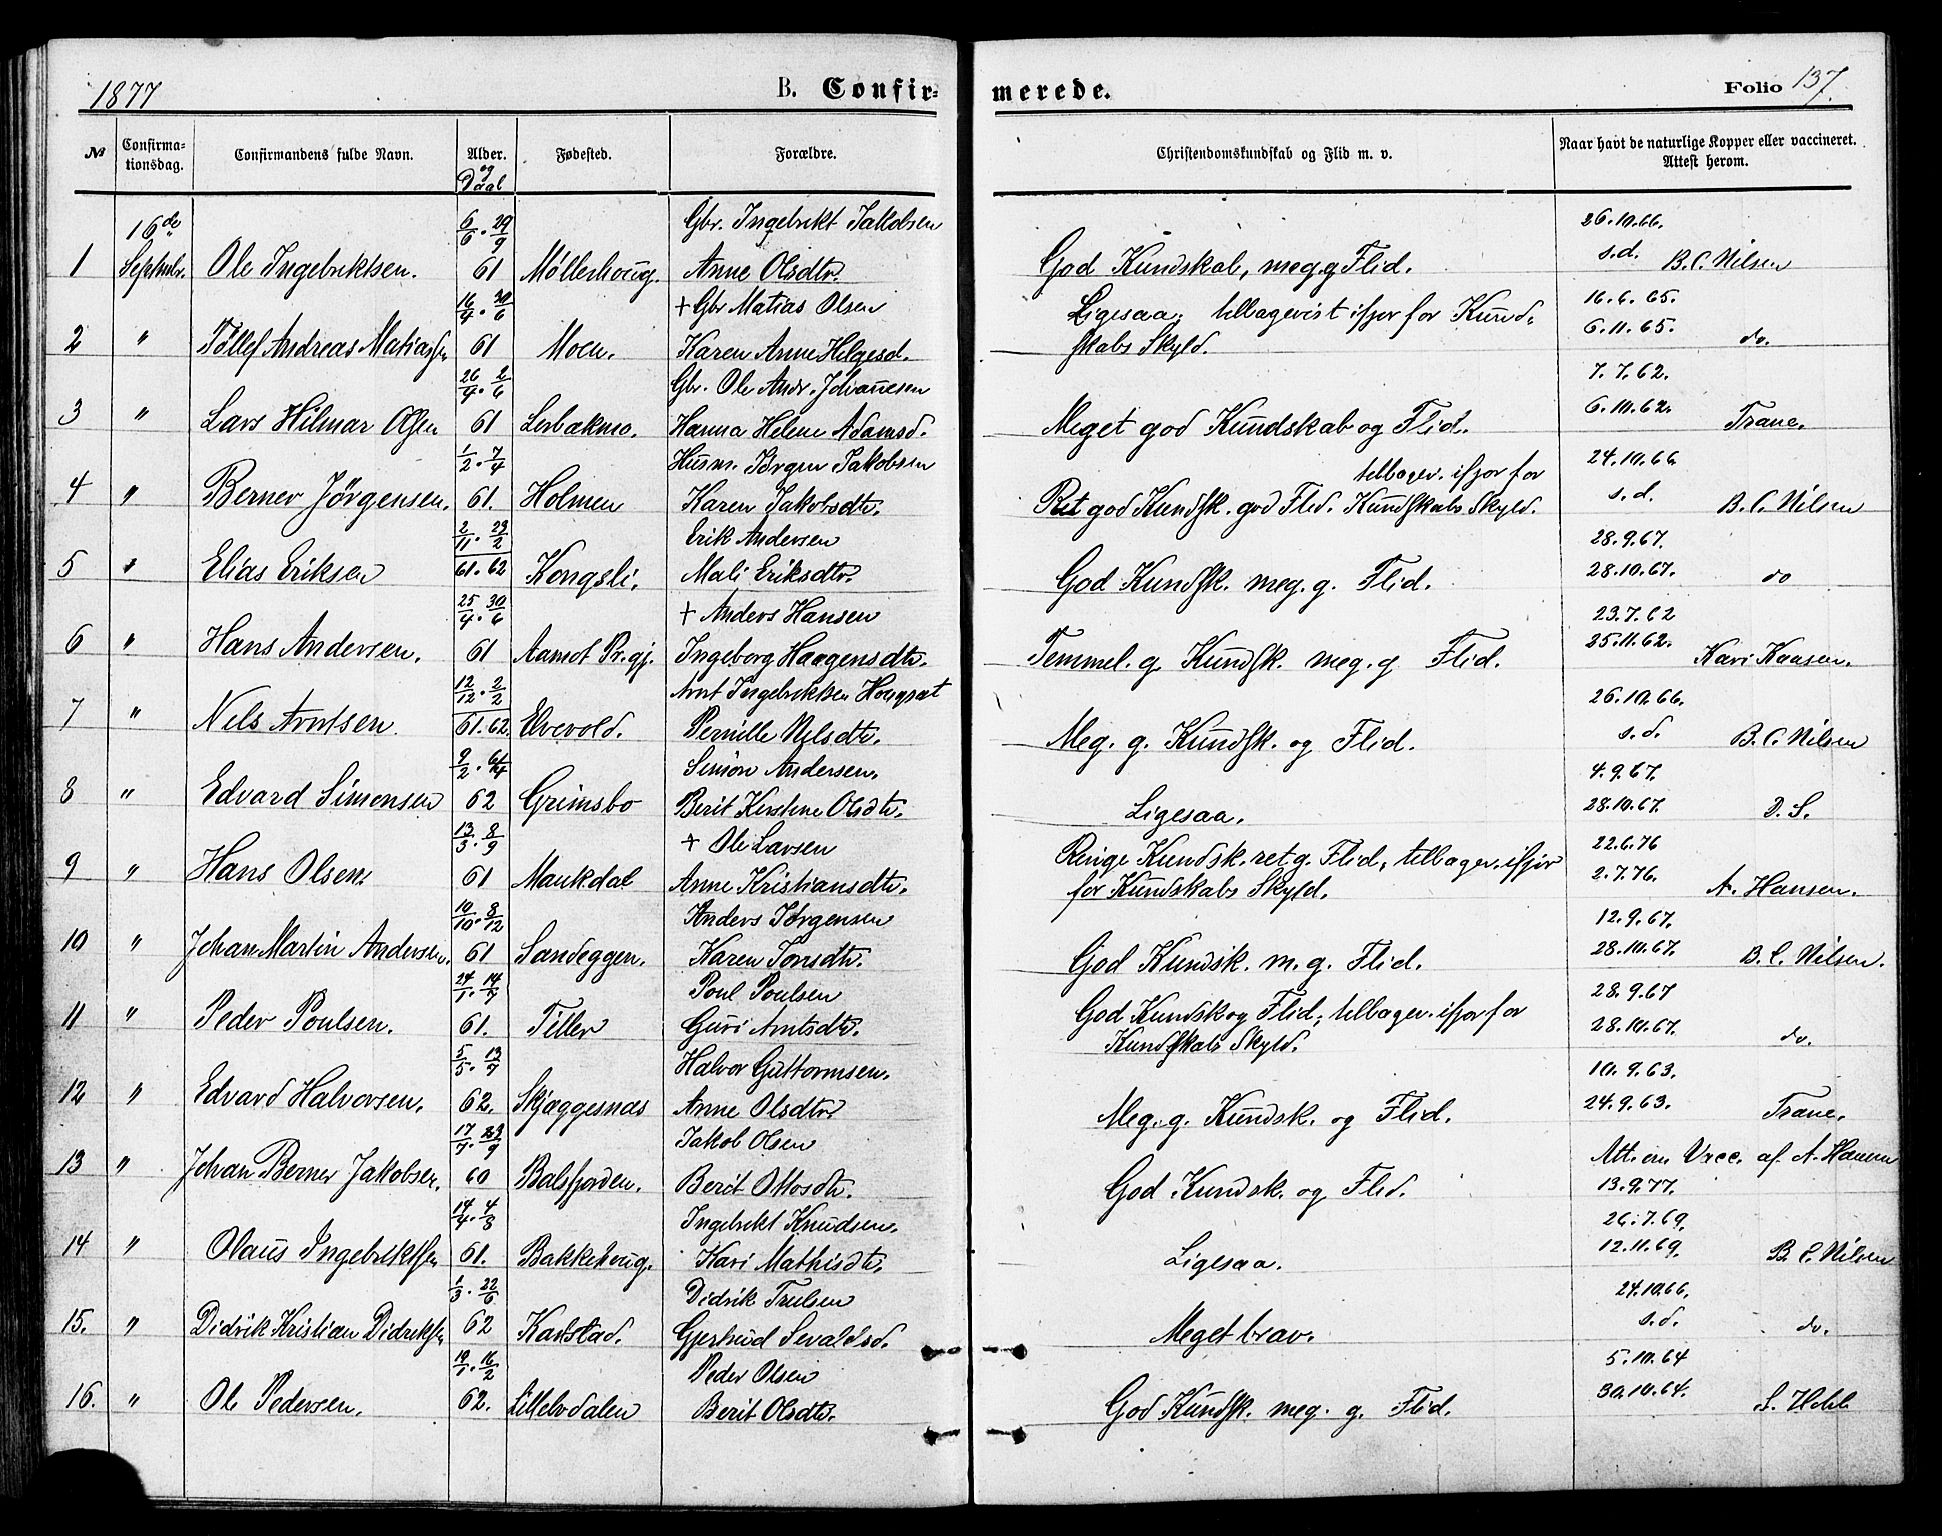 1877 B. Confirmerede. Folio 137.
№ Confirmationsdag. Confirmandens fulde Navn. Alder. og Daab Fødested. Forældre. Christendomskundskab og Flid m. v. Naar havt de naturlige Kopper eller vaccineret. Attest herom.
16de 6/6 · 29/9 Gbr. Ingebrikt Jakobsen 26.10.66.
1 Septmbr. Ole Ingebriktsen. 61 Møllerhoug. Anne Olsdtr. God Kundskab, meg. g Flid. s.d. B.C. Nilsen
16/4 · 30/6 + Gbr Matias Olsen Ligesaa; tilbagevist ifjor for Kund- 16.6.65.
2 " Tollef Andreas Matiassen 61 Moen. Karen Anne Helgesd. skabs Skyld. 6.11.65. do.
26/4 · 2/6 Gbr. Ole Andr. Johannesen 7.7.62.
3 " Lars Hilmar Olsen 61 Lerbækmo. Hanna Helene Adamsd. Meget god Kundskab og Flid. 6.10.62. Trane.
1/2 · 7/4 Husm. Jørgen Jakobsen tilbagev. ifjor for 24.10.66.
4 " Berner Jørgensen. 61. Holmen Karen Jakobsdtr. Ret god Kundsk. god Flid. Kundskabs Skyld. s.d. B.C. Nilsen
2/11 · 23/2 Erik Andersen 28.9.67.
5 " Elias Eriksen 61.62 Kongsli. Mali Eriksdtr. God Kundsk. meg. g. Flid. 28.10.67. do
25/4 · 30/6 + Anders Hansen 23.7.62
6 " Hans Andersen. 61 Aamot Pr.gj. Ingeborg Haagensdtr. Temmel. g. Kundsk. meg. g Flid. 25.11.62. Kari Kaasen.
12/12 · 2/2 Arnt Ingebriktsen Hongset 26.10.66.
7 " Nils Arntsen 61.62. Elvevold. Pernille Nilsdtr. Meg. g. Kundsk. og Flid. s.d. B.C. Nilsen
9/2 · 6/4 Simon Andersen. 4.9.67.
8 " Edvard Simonsen 62 Grimsbo Berit Kirstine Olsdtr. Ligesaa. 28.10.67. D.S.
13/3 · 8/9 + Ole Larsen Ringe Kundsk. ret g. Flid, tilbagev. ifjor 22.6.76
9 " Hans Olsen. 61 Maukdal Anne Kristiansdtr. for Kundskabs Skyld. 2.7.76. A. Hansen.
10/10 · 8/12 Anders Jørgensen 12.9.67.
10 " Johan Martin Andersen. 61 Sandeggen. Karen Tonsdtr. God Kundsk. m. g. Flid. 28.10.67. B.C. Nilsen.
24/1 · 14/7 Poul Poulsen God Kundsk og Flid; tilbagev. ifjor for 28.9.67
11 " Peder Poulsen. 61. Tiller Guri Arntsdtr. Kundskabs Skyld. 28.10.67. do.
5/5 · 13/7 Halvor Guttormsen. 10.9.63.
12 " Edvard Halvorsen. 62. Skjæggesnæs Anne Olsdtr Meg. g. Kundsk. og Flid. 24.9.63. Trane.
17/7 · 23/9 Jakob Olsen Att. om Vacc. af A. Hansen
13 " Johan Berner Jakobsen. 60 Balsfjorden. Berit Ottosdtr. God Kundsk. og Flid. 13.9.77.
14/4 · 4/8 Ingebrikt Knudsen. 26.7.69.
14 " Olaus Ingebriktsen 61. Bakkehoug. Kari Mathisdtr. Ligesaa. 12.11.69. B.C. Nilsen
1/3 · 22/6 Didrik Trulsen 24.10.66.
15. " Didrik Kristian Didriksen 62 Karlstad. Gjertrud Sevaldsd. Meget brav. s.d. do.
19/1 · 16/2 Peder Olsen 5.10.64
16. " Ole Pedersen. 62. Lillelvdalen Berit Olsdtr. God Kundsk. meg. g. Flid. 30.10.64.